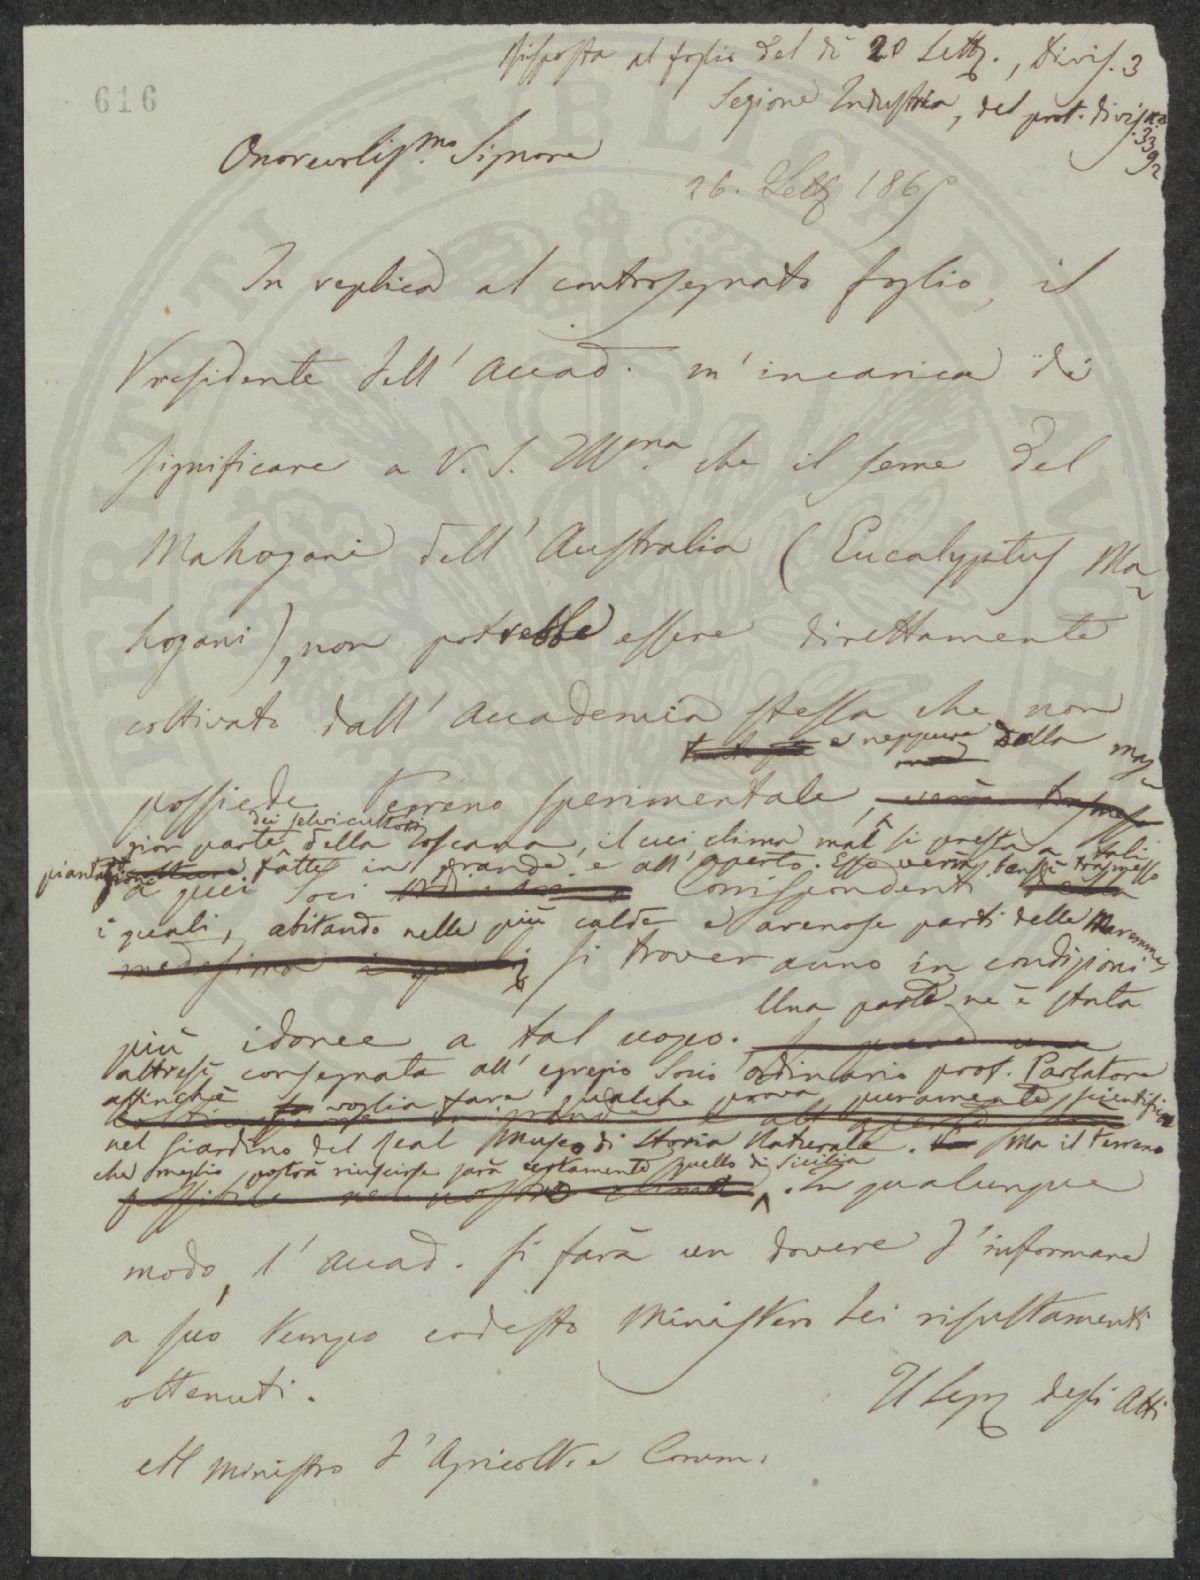 Risposta al foglio del dì 20 Settb., Divis. 3
Sezione Industria, del prot. divis.
3392
616
Onorevoliss.mo Signore
26. Settb 1869
In replica al controsegnato foglio, il
Presidente dell' Accad. m' incarica di
significare a V. S. Ill.ma che il seme del
Mahogani dell' Australia (Eucalyptus Ma-
hogani), non potrebbe essere direttamente
coltivato dall' Accademia stessa che non
e neppure dalla mag-
possiede terreno sperimentale,
dei selvicultori
gior parte della Toscana, il cui clima mal si presta a tali
piantagioni fatte in grande e all' aperto. Esso verrà bensì trasmesso
a quei Soci Corrispondenti
i quali, abitando nelle più calde e arenose parti delle Maremme
si troveranno in condizioni
Una parte ne è stata
più idonee a tal uopo.
altresì consegnata all' egregio Socio ordinario prof. Parlatore
affinchè voglia fare qualche prova puramente scientifica
nel giardino del real Museo di Storia Naturale. Ma il terreno
che meglio potrà riuscire sarà certamente quello di Sicilia
. In qualunque
modo, l' Accad. si farà un dovere d' informare
a suo tempo codesto Ministero dei risultamenti
ottenuti.
Il Segr degli Atti
Al Ministro d' Agricolt. e Comm.